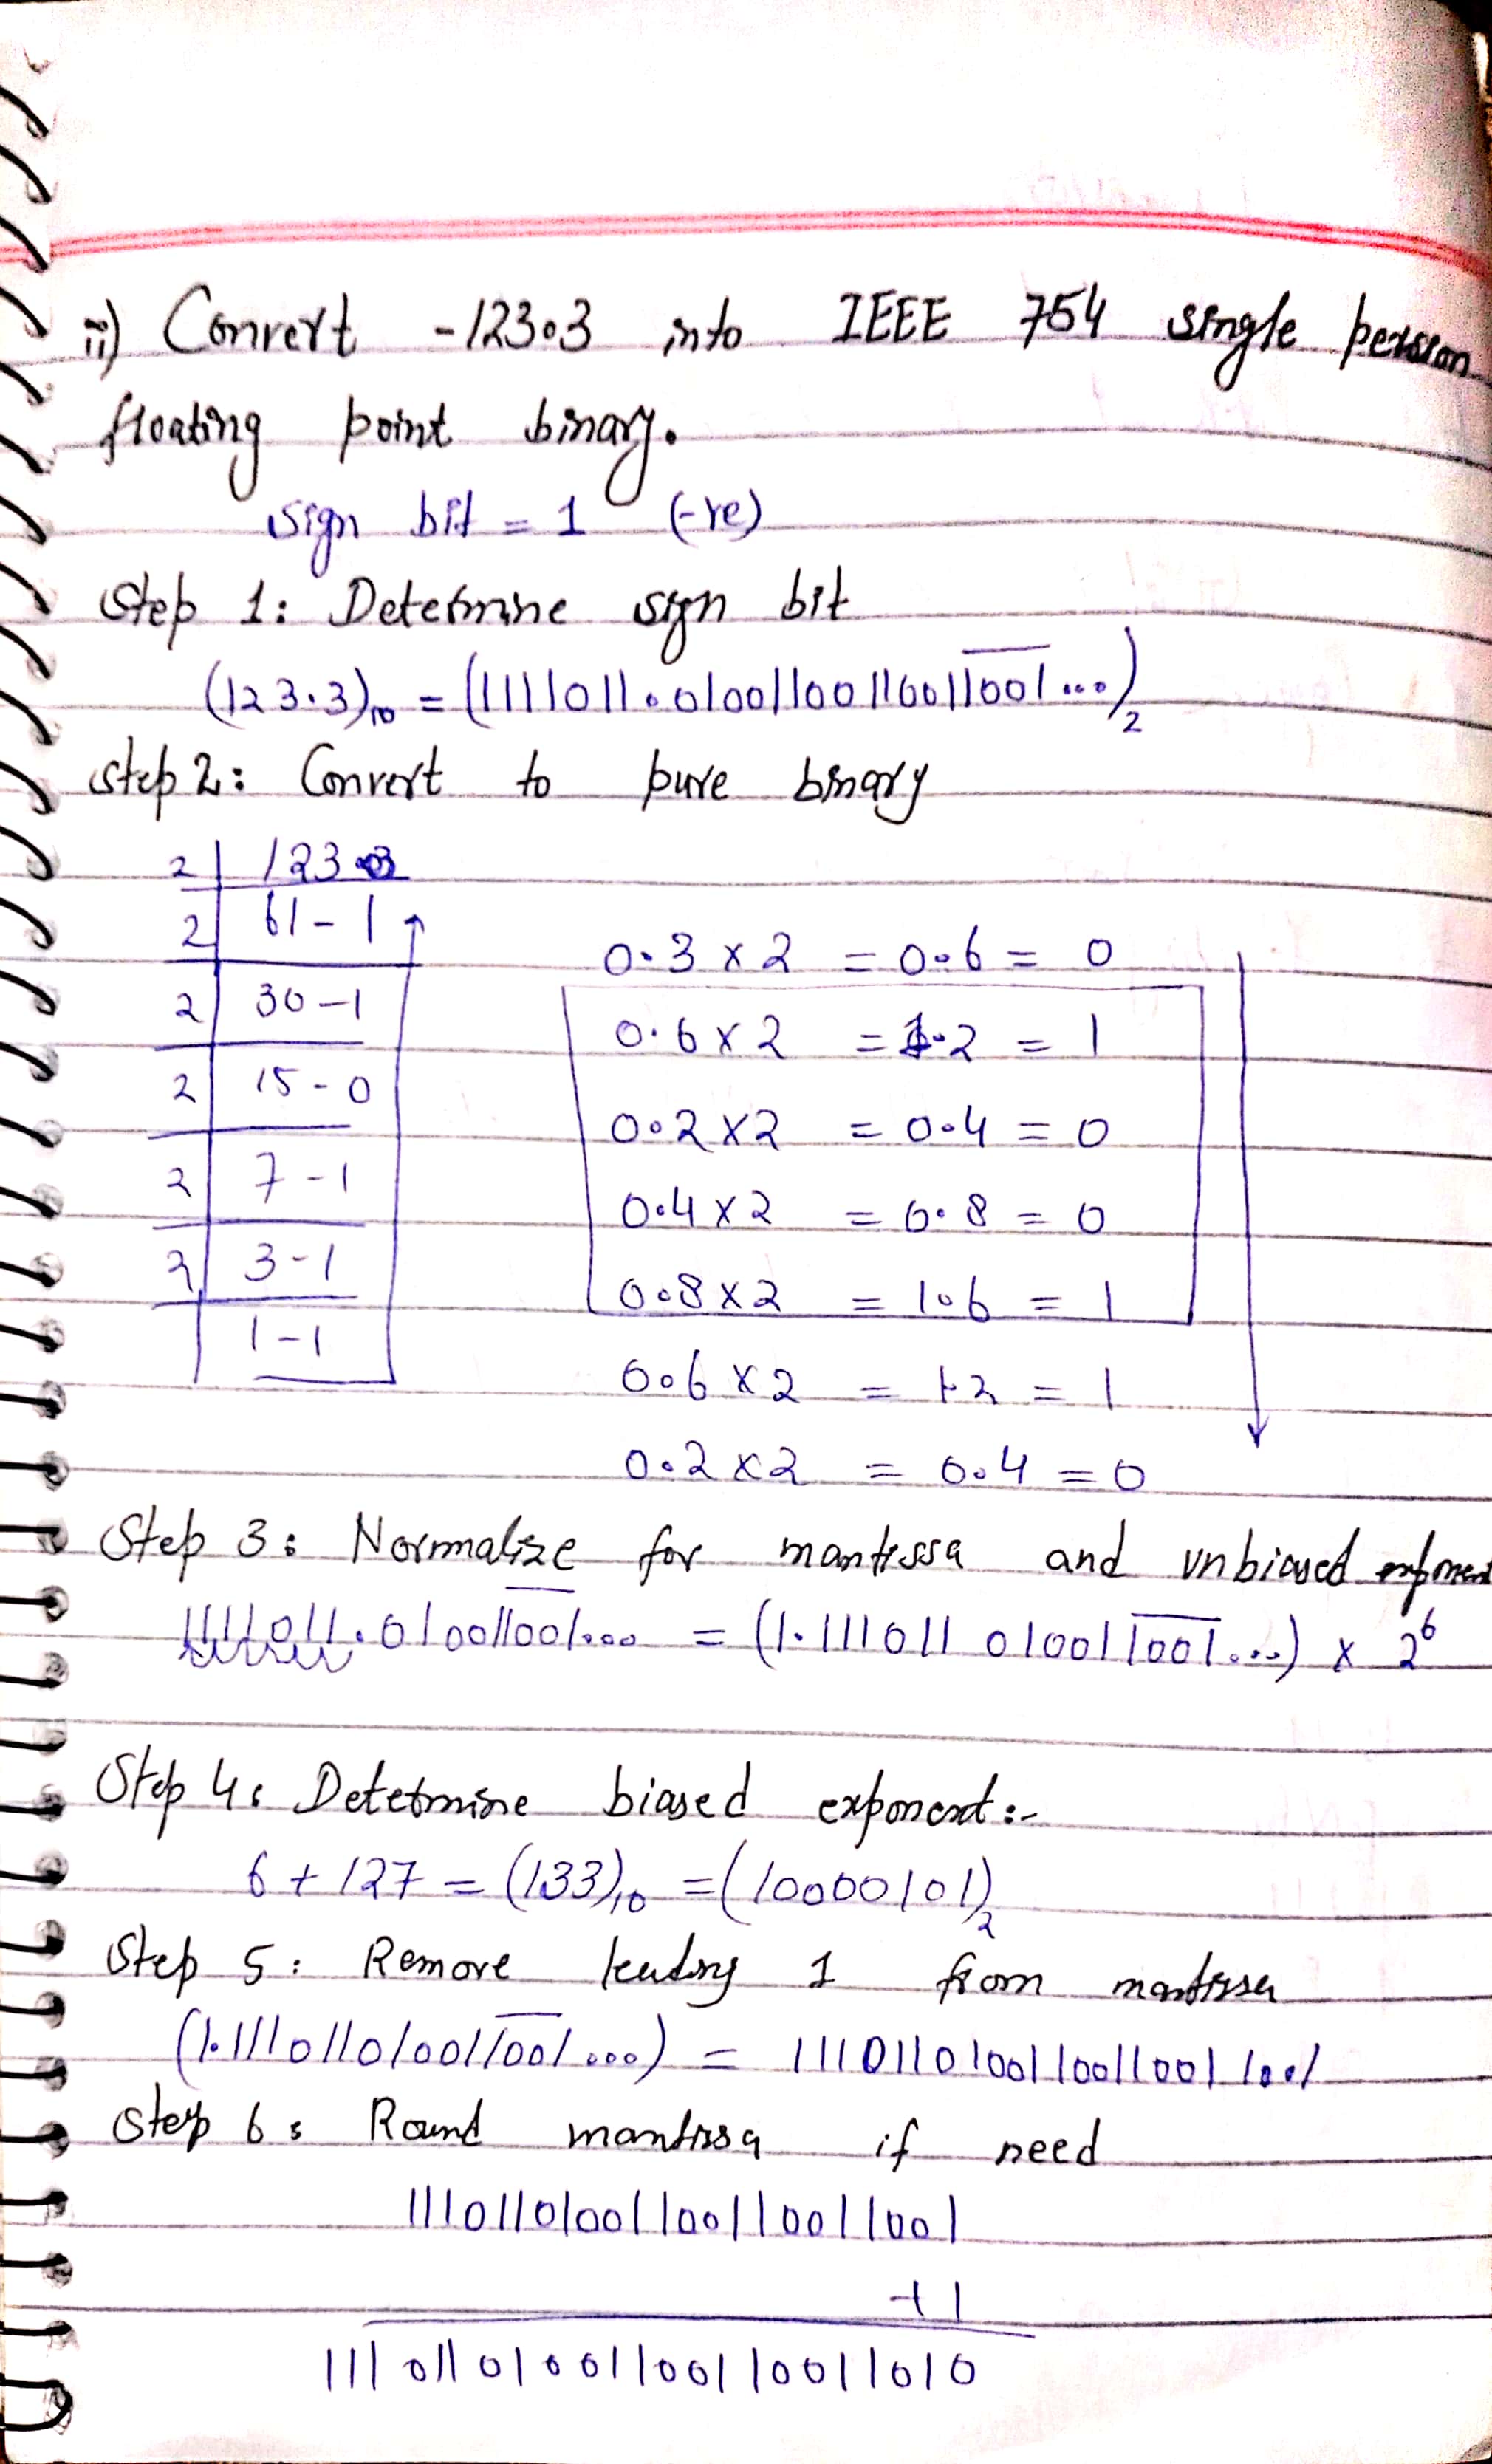 ii) Convert -123.3 into IEEE 754 single persion
floating point binary.
sign bit = 1 (-ve)
Step 1: Determine sign bit
(123.3)₁₀ = (1111011.01001100110011001...)₂
Step 2: Convert to pure binary
2 | 123
2 | 61 - 1
2 | 30 - 1
2 | 15 - 0
2 | 7 - 1
2 | 3 - 1
1 - 1
0.3 x 2 = 0.6 = 0
0.6 x 2 = 1.2 = 1
0.2 x 2 = 0.4 = 0
0.4 x 2 = 0.8 = 0
0.8 x 2 = 1.6 = 1
0.6 x 2 = 1.2 = 1
0.2 x 2 = 0.4 = 0
Step 3: Normalize for mantissa and unbiased exponent
1111011.010011001... = (1.111011 010011001...) x 2⁶
Step 4: Determine biased exponent:-
6 + 127 = (133)₁₀ = (10000101)₂
Step 5: Remove leading 1 from mantissa
(1.111011010011001...) = 11101101001100110011001
Step 6: Round mantissa if need
11101101001100110011001
+1
11101101001100110011010